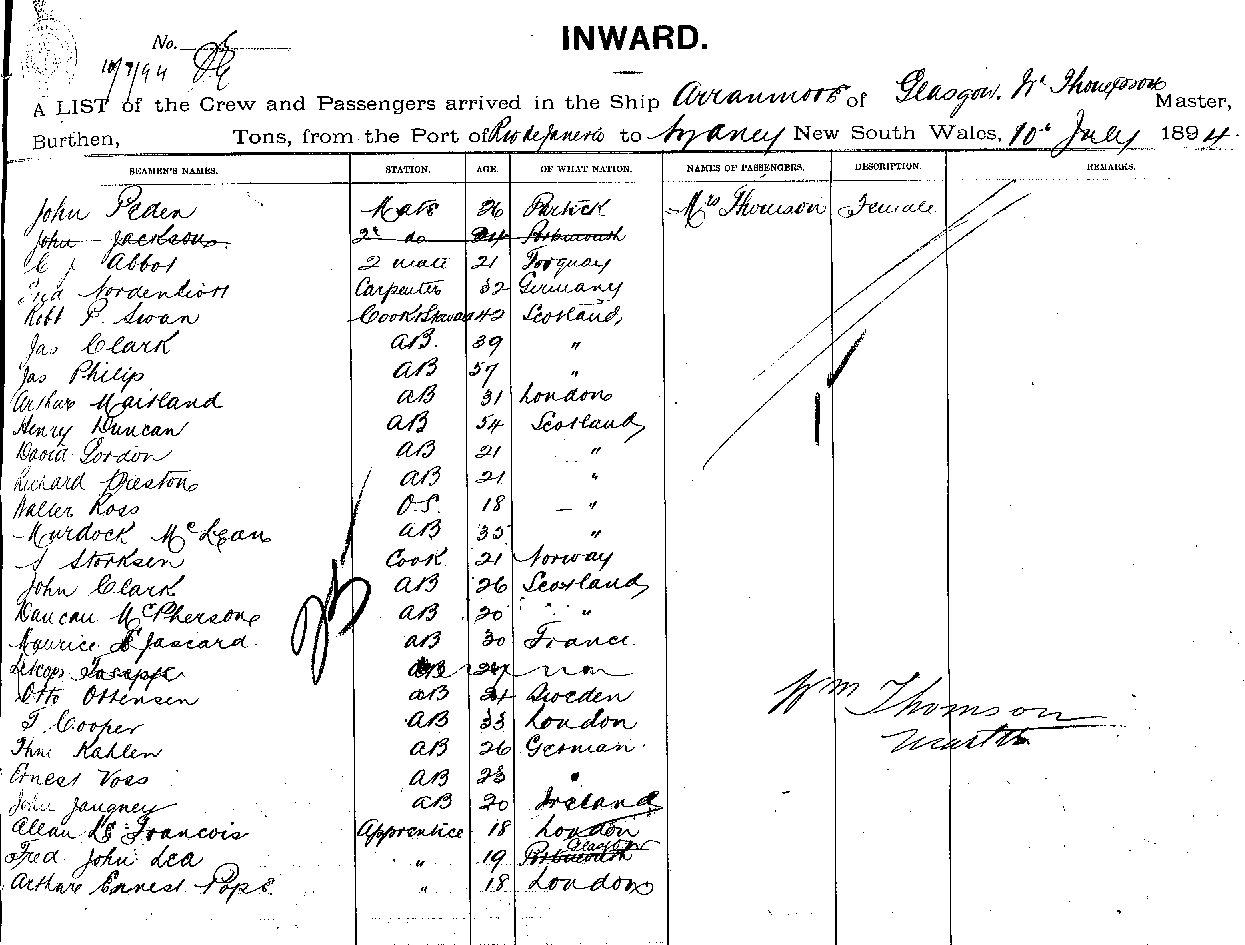 No.
10/7/94
INWARD.
A LIST of the Crew and Passengers arrived in the Ship Arranmoor of Glasgow. Wm Thompson Master,
Burthen, Tons, from the Port of Rio de Janeiro to Sydney New South Wales, 10th July 1894.
SEAMEN'S NAMES. STATION. AGE. OF WHAT NATION. NAMES OF PASSENGERS. DESCRIPTION. REMARKS.
John Peden Mate 26 Partick Mrs Thomson Female
John Jackson 2d do 24 Portsmouth
C J Abbot 2 mate 21 Torquay
32 Germany Carpenter
Robt P. Swan Cook & 42 Scotland
Jas Clark AB. 39 "
Jas Philip AB 57 "
Arthur Maitland AB 31 London
Henry Duncan AB 54 Scotland
David Gordon AB 21 "
Richard Preston AB 21 "
Walter Ross O.S. 18 "
Murdock McLean AB 35 "
Storksen Cook 21 Norway
John Clark AB 26 Scotland
Duncan McPherson AB 20 "
25
Maurice Jascard AB 30 France
AB
Otto Ottensen AB Sweden
Wm Thomson
T Cooper AB 33 London
Master
Kahlen AB 26 German
Ernest Voss AB 23 "
John AB 20 Ireland
Allan Le Francois Apprentice 18 London
Glasgow
Fred John Lea " 19 Portsmouth
Arthur Ernest Pope " 18 London